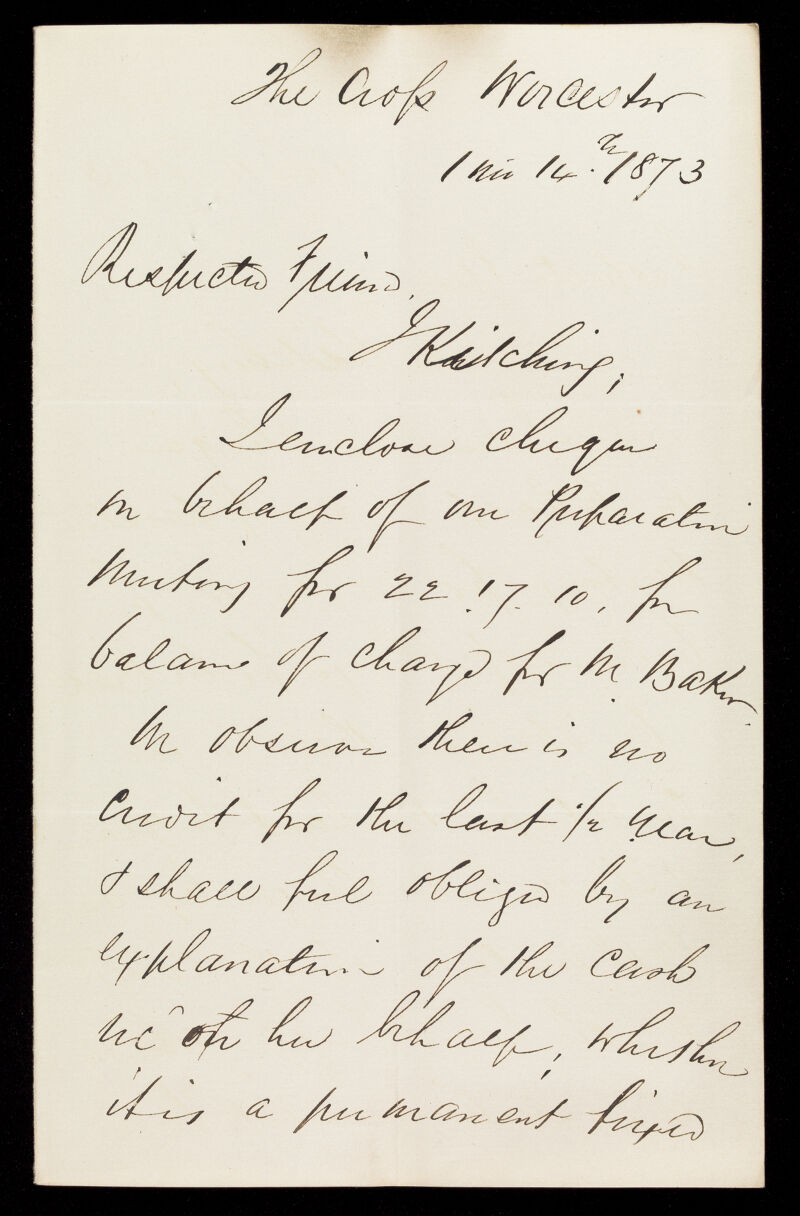 The Cross Worcester
1 mo 14.th 1873
Respected Friend,
J Kitching;
I enclose cheque
on behalf of our Preparative
Meeting for 22.17.10, for
balance of charge for M. Baker.
We observe there is no
credit for the last 1/2 year,
& shall feel obliged by an
explanation of the cash
recd on her behalf, whether
it is a permanent fixed